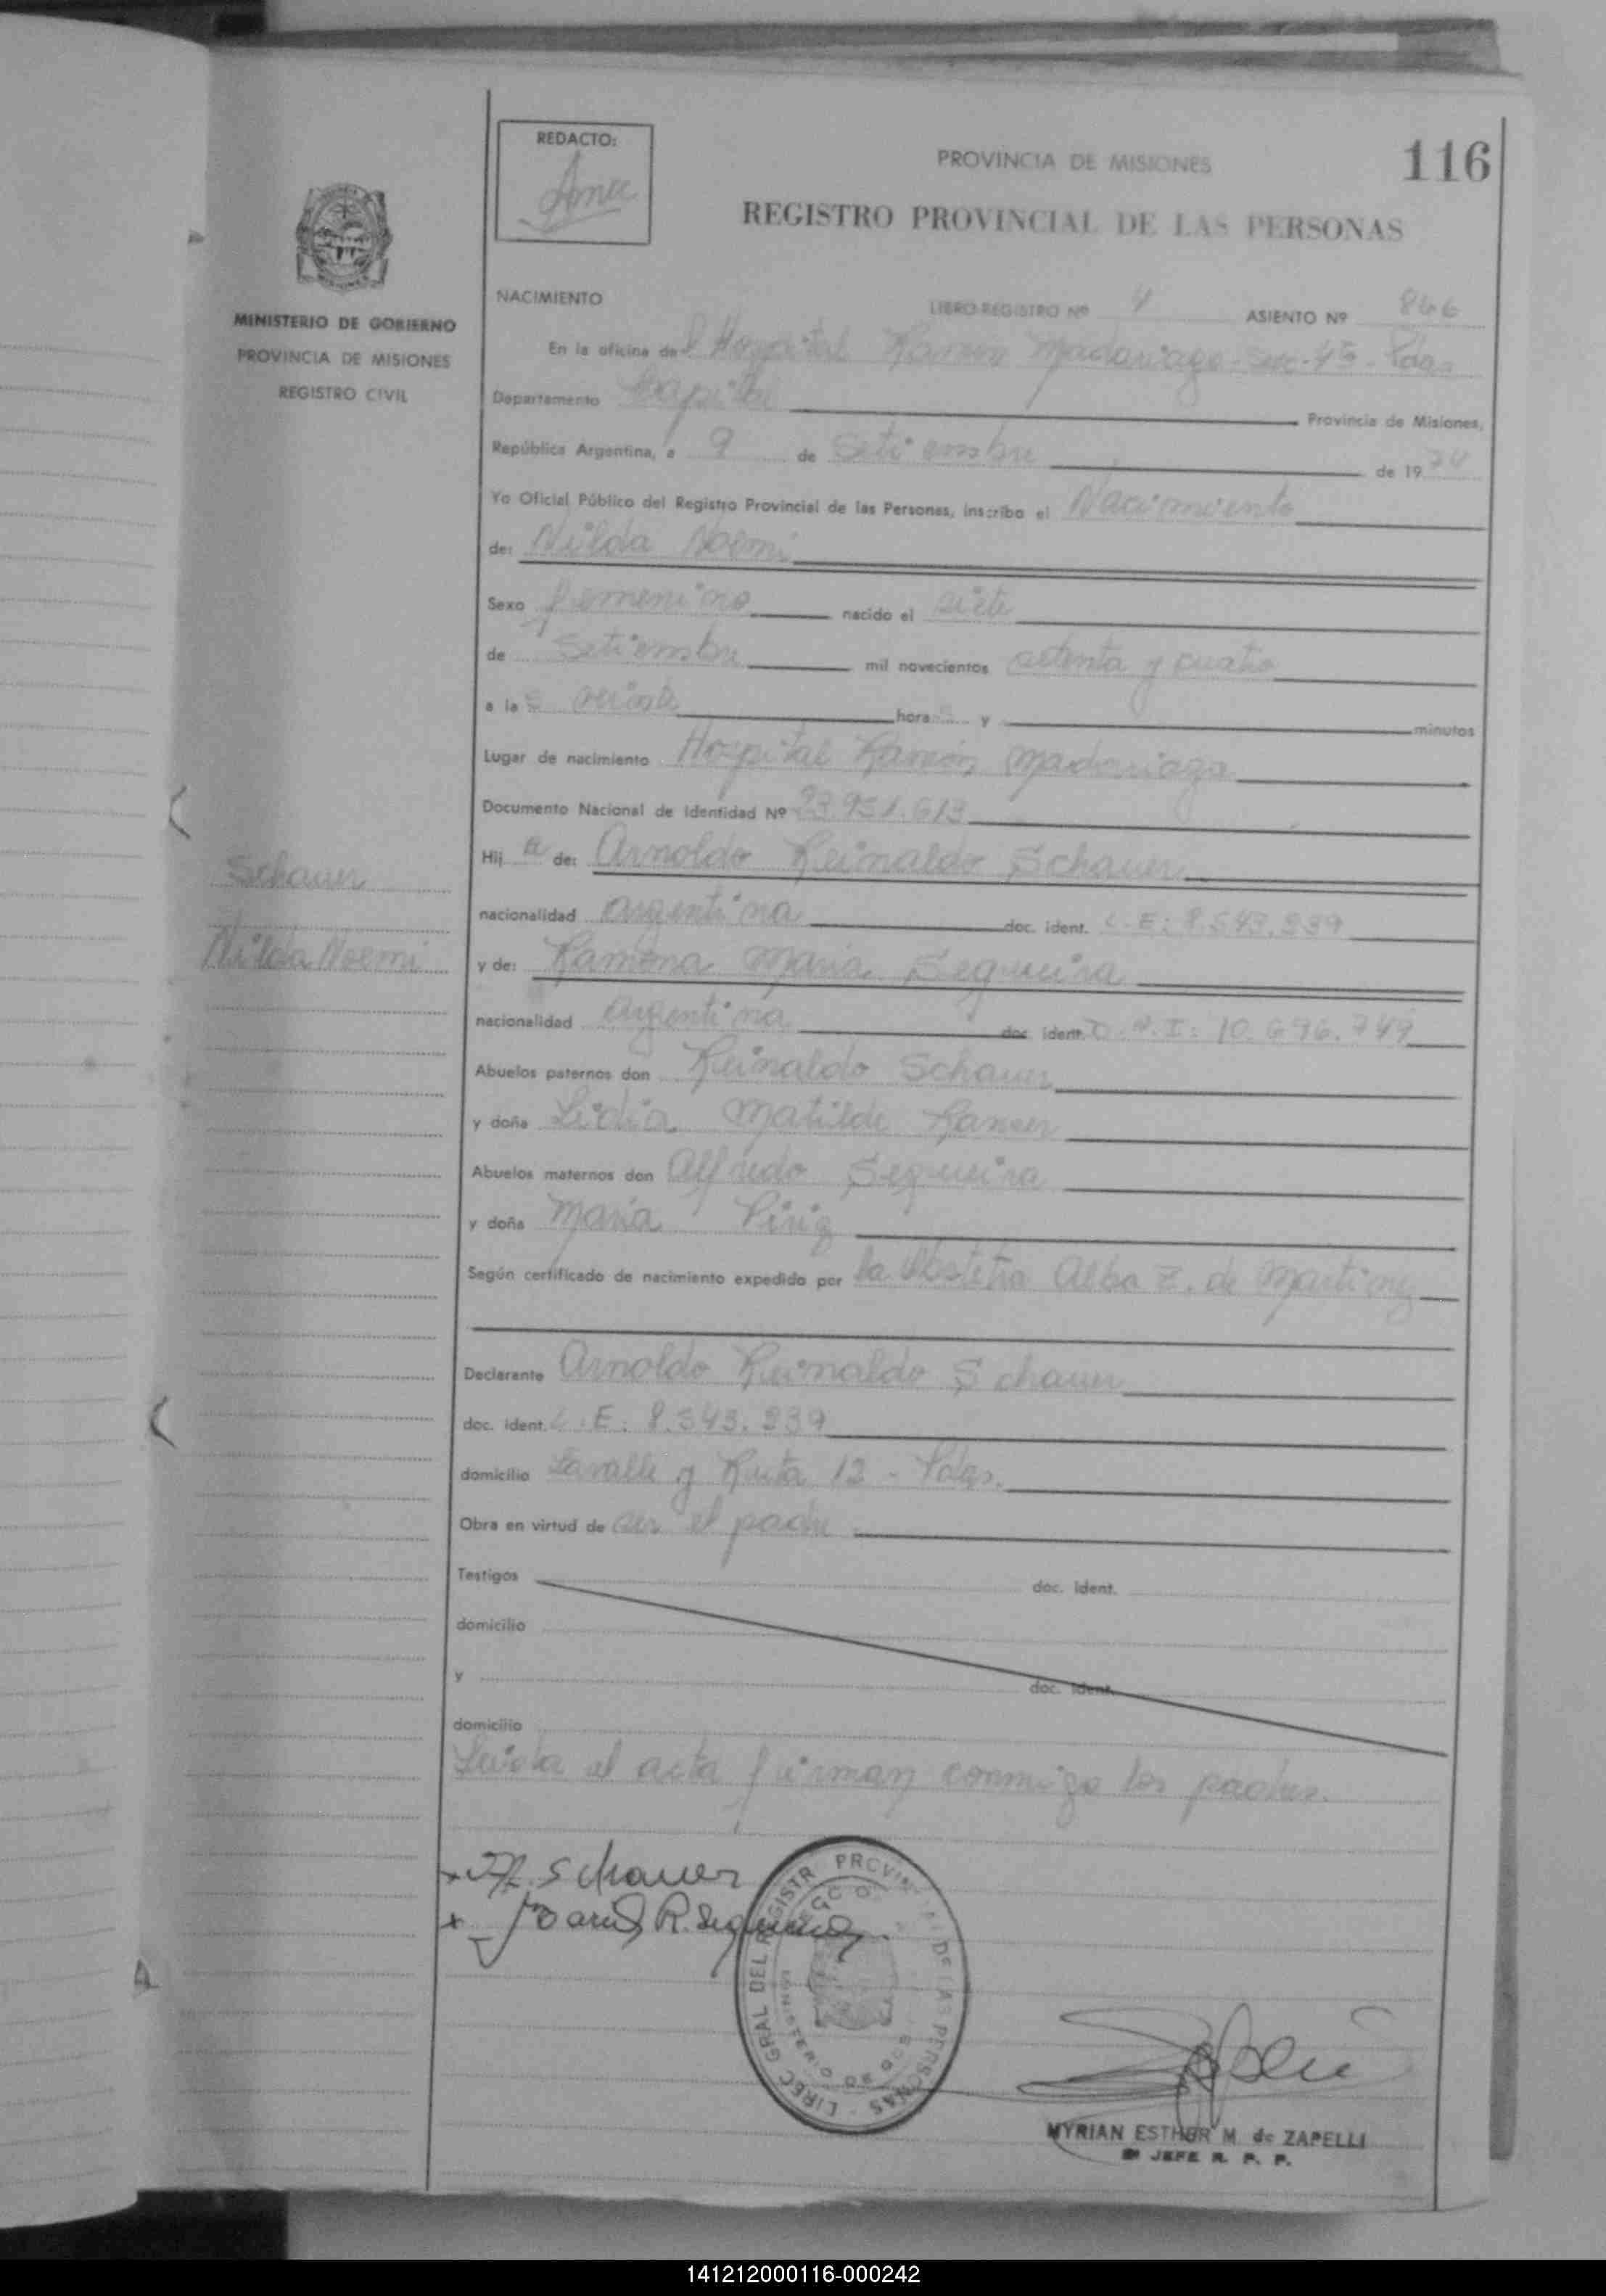 116
REDACTO:
PROVINCIA DE MISIONES
REGISTRO PROVINCIAL DE LAS PERSONAS
MINISTERIO DE GOBIERNO
PROVINCIA DE MISIONES
REGISTRO CIVIL
NACIMIENTO LIBRO-REGISTRO Nº 4 ASIENTO Nº 866
En la oficina del Hospital Ramón Madariaga - Sec. 4ta - Pdas
Departamento Capital Provincia de Misiones,
República Argentina, a 9 de Setiembre de 1974
Yo Oficial Público del Registro Provincial de las Personas, inscribo el Nacimiento
de: Nilda Noemi
Sexo femenino nacido el siete
de Setiembre mil novecientos setenta y cuatro
a las horas y minutos
Lugar de nacimiento Hospital Ramón Madariaga
Documento Nacional de Identidad Nº 23.951.613
Hija de: Arnoldo Reinaldo Schauer
Schauer
Nilda Noemi
nacionalidad argentina doc. ident. L.E: 8.543.339
y de: Ramona Maria Segueira
nacionalidad argentina doc. ident. D.N.I: 10.696.749
Abuelos paternos don Reinaldo Schauer
y doña Lidia Matilde
Abuelos maternos don Alfredo Segueira
y doña Maria Piriz
Según certificado de nacimiento expedido por la Obstetra Alba Z. de Martinez
Declarante Arnoldo Reinaldo Schauer
doc. ident. L.E: 8.543.339
domicilio Lavalle y Ruta 12 - Pdas.
Obra en virtud de ser el padre
Testigos doc. ident.
domicilio
y doc. ident.
domicilio
Leida el acta firman conmigo los padres.
Schauer
Maria R. Segueira
DIREC GRAL DEL REGISTR PROVINCIAL DE LAS PERSONAS
MYRIAN ESTHER M de ZAPELLI
JEFE R. P. P.
141212000116-000242